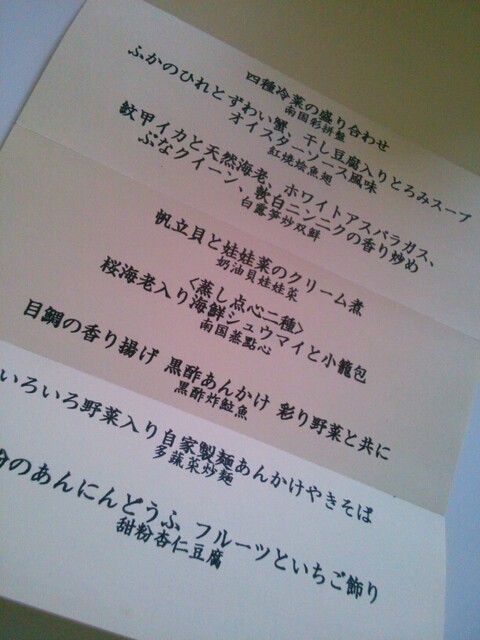 四種冷菜の盛り合わせ
南国彩拼盤
ふかのひれとずわい蟹、干し豆腐入りとろみスープ
オイスターソース風味
紅焼烩魚翅
紋甲イカと天然海老、ホワイトアスパラガス、
ぶなクイーン、軟白ニンニクの香り炒め
白露笋炒双鮮
帆立貝と娃娃菜のクリーム煮
奶油貝娃娃菜
<蒸し点心二種>
桜海老入り海鮮シュウマイと小籠包
南国蒸點心
目鯛の香り揚げ 黒酢あんかけ 彩り野菜と共に
黒酢炸魚
いろいろ野菜入り自家製麺あんかけやきそば
多蔬菜炒麺
のあんにんどうふ フルーツといちご飾り
甜粉杏仁豆腐